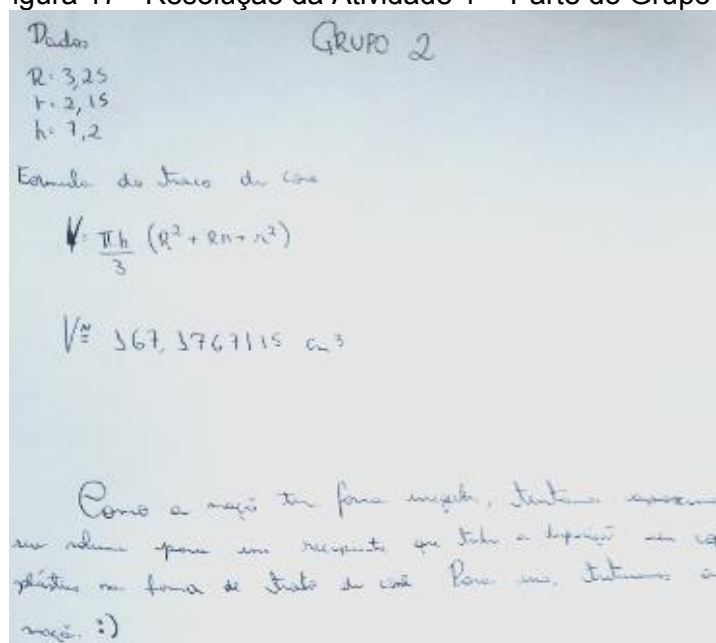 igura 17 - Resolução da Atividade 1 - Parte do Grupo
Dados
GRUPO 2
R: 3,25
r: 2,15
h: 7,2
Formula do tronco de cone
V: πh/3 (R² + Rr + r²)
V ≅ 167,1767115 cm³
Como a maçã tem forma irregular, tentamos aproxim
seu volume para um recipiente que tinha a disposição um co
plástico na forma de tronco de cone Para isso,
maçã. :)